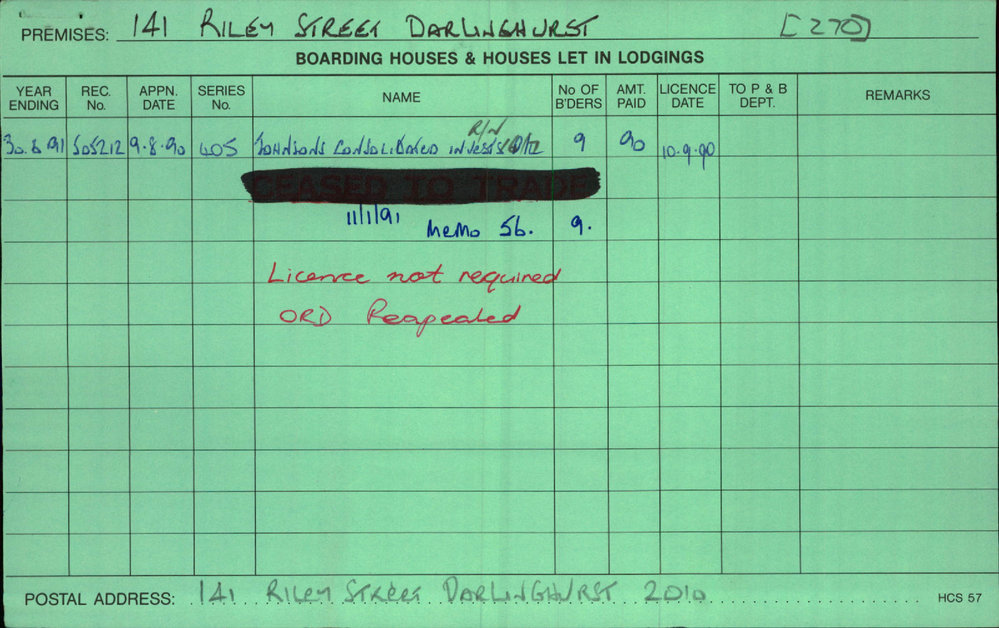 PREMISES: 141 RILEY STREET DARLINGHURST [270]
BOARDING HOUSES & HOUSES LET IN LODGINGS
YEAR ENDING REC. No. APPN. DATE SERIES No. NAME No OF B'DERS AMT. PAID LICENCE DATE TO P & B DEPT. REMARKS
R/N
30.6.91 505212 9.8.90 405 JOHNSONS CONSOLIDATED 9 90 10.9.90
CEASED TO TRADE
11/1/91 MEMO 56. 9.
Licence not required
ORD Reapealed
POSTAL ADDRESS: 141 RILEY STREET DARLINGHURST 2010 HCS 57